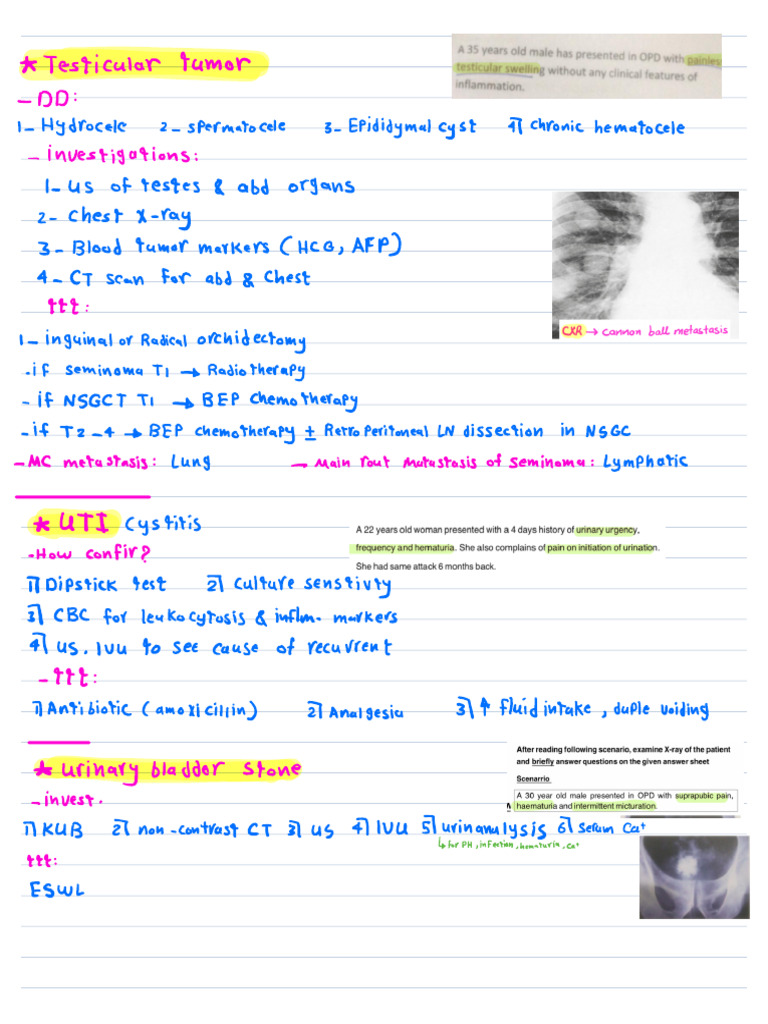 * Testicular tumor
A 35 years old male has presented in OPD with painles
testicular swelling without any clinical features of
inflammation.
- DD:
1- Hydrocele 2- spermatocele 3- Epididymal cyst 4) chronic hematocele
- investigations:
1- US of testes & abd organs
2- Chest X-ray
3- Blood tumor markers (HCG, AFP)
4- CT scan for abd & Chest
CXR → cannon ball metastasis
ttt:
1- inguinal or Radical orchidectomy
- if seminoma T1 → Radiotherapy
- if NSGCT T1 → BEP chemotherapy
- if T2-4 → BEP chemotherapy ± Retroperitoneal LN dissection in NSGC
- MC metastasis: Lung → Main rout mutastasis of seminoma: Lymphatic
* UTI Cystitis
A 22 years old woman presented with a 4 days history of urinary urgency,
frequency and hematuria. She also complains of pain on initiation of urination.
She had same attack 6 months back.
- How confir?
1) Dipstick test 2) Culture senstivty
3) CBC for leukocytosis & inflm. markers
4) US, IVU to see cause of recurrent
- ttt:
1) Antibiotic (amoxicillin) 2) Analgesia 3) ↑ fluid intake, duple voiding
* urinary bladder stone
After reading following scenario, examine X-ray of the patient
and briefly answer questions on the given answer sheet
Scenarrio
A 30 year old male presented in OPD with suprapubic pain,
haematuria and intermittent micturation.
- invest.
1) KUB 2) non-contrast CT 3) US 4) IVU 5) urinanalysis 6) serum Ca+
↳ for PH, infection, hematuria, Ca+
ttt:
ESWL